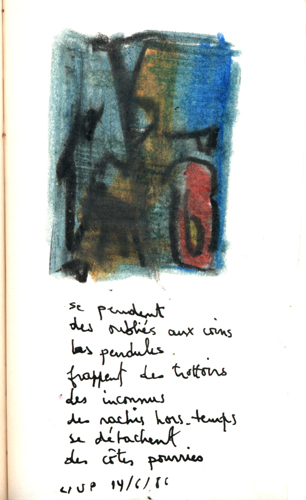 se pendent
des oubliés aux coins
les pendules.
frappent des trottoirs
des inconnus
des rachis hors-temps
se détachent
des côtes pourries
14/6/86